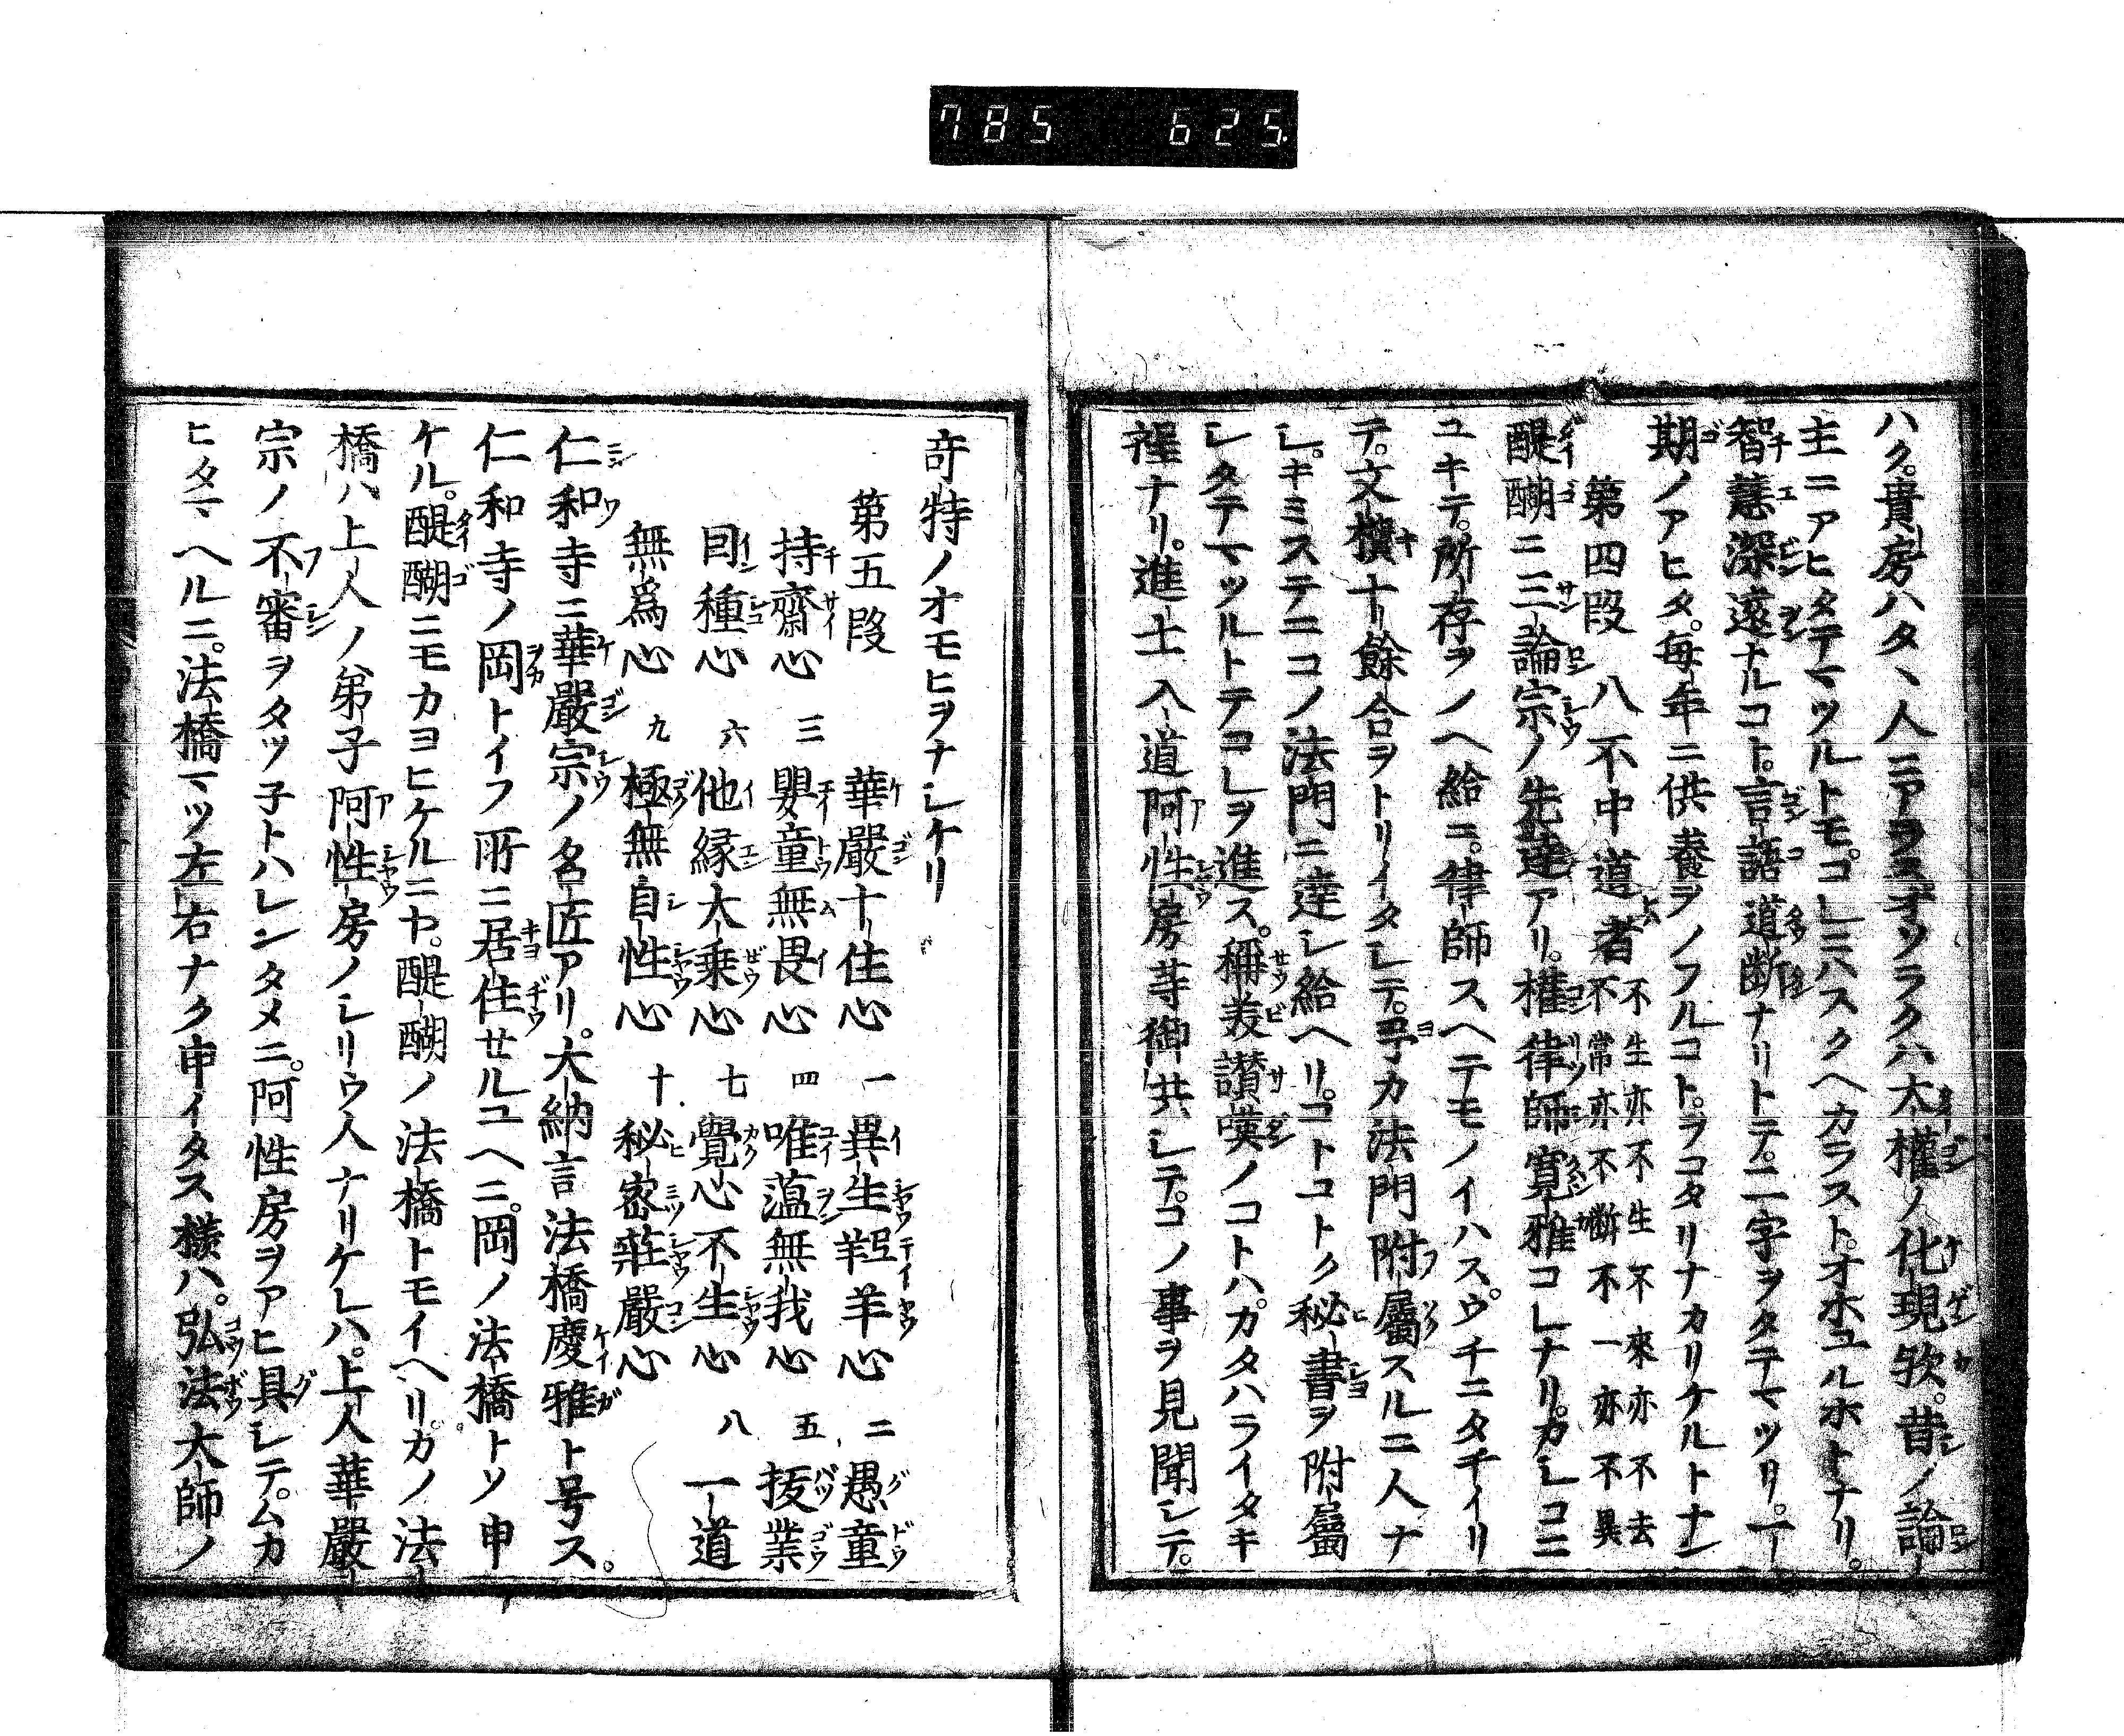 785 625
ハク。貴房ハタヽ人ニアラスオソラクハ大權ノ化現歟。昔ノ論
主ニアヒタテマツルトモ。コレニハスクヘカラスト。オホユルホトナリ。
智慧深遠ナルコト。言語道斷ナリトテ。二字ヲタテマツリ。一
期ノアヒタ。毎年ニ供養ヲノフルコト。ヲコタリナカリケルトナン
第四段 八不中道者 不生亦不生不來亦不去 不常亦不斷不一亦不異
醍醐ニ三論宗ノ先達アリ。權律師寛雅コレナリ。カシコニ
ユキテ。所存ヲノヘ給ニ。律師スヘテモノイハス。ウチニタチイリ
テ。文櫃十餘合ヲトリイタシテ。予カ法門附屬スルニ人ナ
シ。キミステニコノ法門ニ達シ給ヘリ。コトコトク秘書ヲ附屬
シタテマツルトテコレヲ進ス。稱美讃嘆ノコトハ。カタハライタキ
程ナリ。進士入道阿性房等御共シテ。コノ事ヲ見聞シテ。
奇特ノオモヒヲナシケリ
第五段 華嚴十住心 一異生羝羊心 二愚童
持齋心 三嬰童無畏心 四唯蘊無我心 五拔業
因種心 六他縁大乘心 七覺心不生心 八一道
無爲心 九極無自性心 十秘密莊嚴心
仁和寺ニ華嚴宗ノ名匠アリ。大納言法橋慶雅ト号ス。
仁和寺ノ岡トイフ所ニ居住セルユヘニ。岡ノ法橋トソ申
ケル。醍醐ニモカヨヒケルニヤ。醍醐ノ法橋トモイヘリ。カノ法
橋ハ上人ノ弟子阿性房ノシリウ人ナリケレハ。上人華嚴
宗ノ不審ヲタツ子トハレンタメニ。阿性房ヲアヒ具シテ。ムカ
ヒタマヘルニ。法橋マツ左右ナク申イタス樣ハ。弘法大師ノ